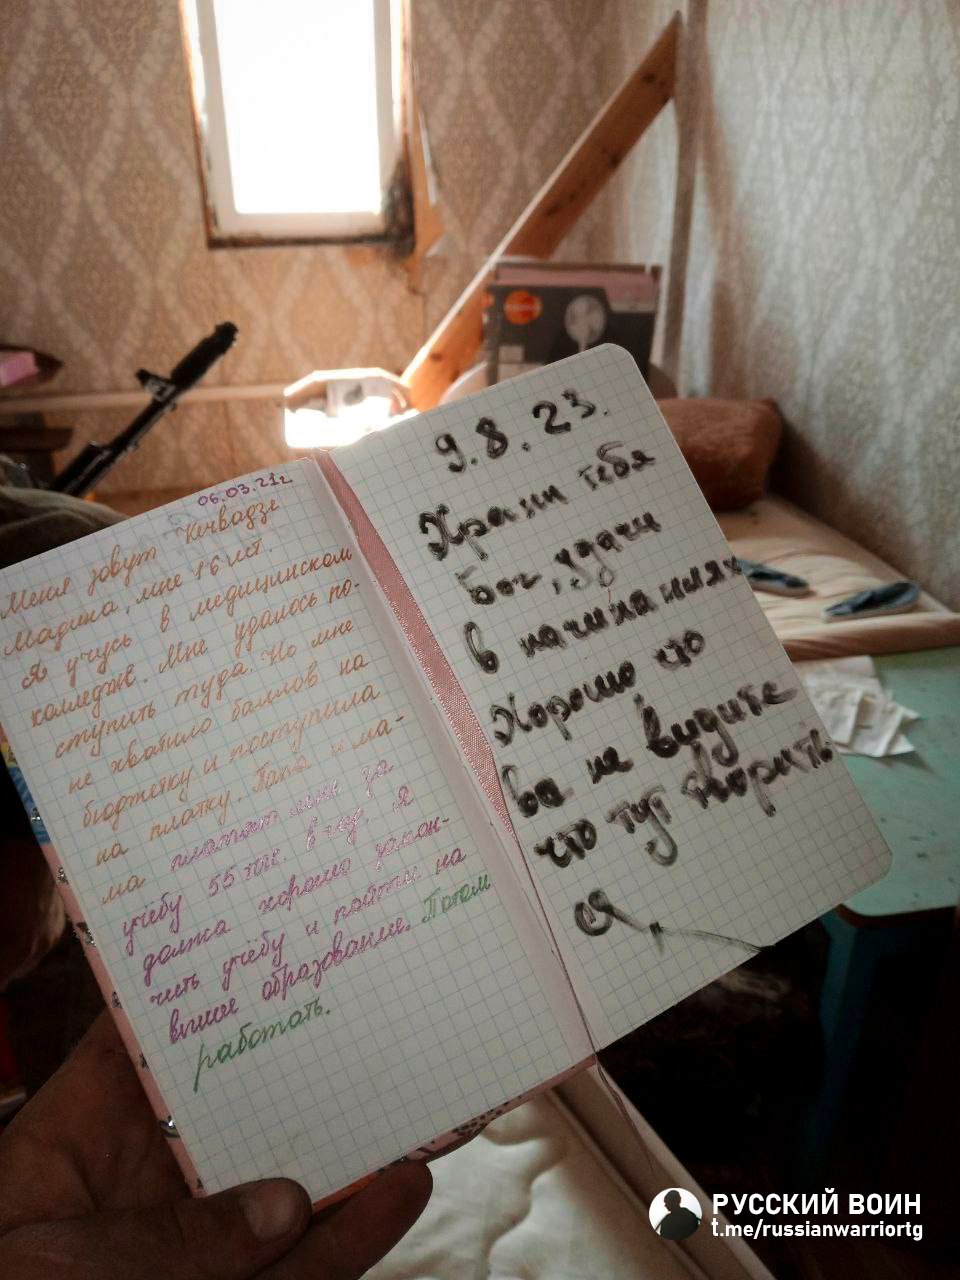 06.03.21г
Меня зовут Кечвадзе
Мадина, мне 16 лет.
Я учусь в медицинском
колледже. Мне удалось по-
ступить туда. Но мне
не хватило баллов на
бюджетку и поступила
на платку. Папа и ма-
ма платят мне за
учёбу 55 тыс. в год. Я
должна хорошо закон-
чить учёбу и пойти на
вышее образование. Потом
работать.
9.8.23.
Храни тебя
бог, удачи
в начинаниях
Хорошо что
вы не видите
что тут творить
ся,
РУССКИЙ ВОИН
t.me/russianwarriortg